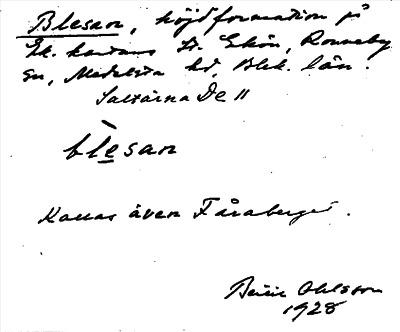 Blesan, höjdformation på
Ek. kartans St. Ekön, Ronneby
sn, Medelsta hd, Blek. län.
Saltärna De 11
blesan
Kallas även Fåraberget.
Bernt Ohlsson
1928